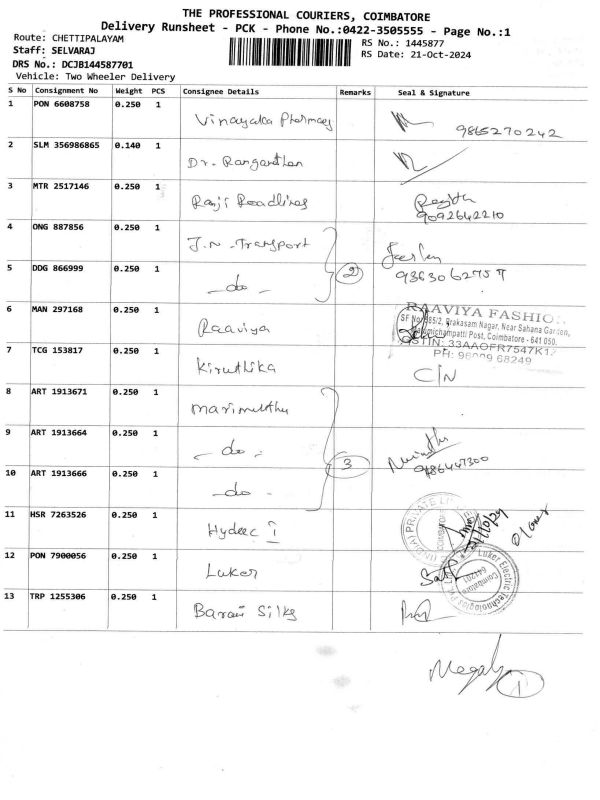 THE PROFESSIONAL COURIERS, COIMBATORE
Delivery Runsheet - PCK - Phone No.:0422-3505555 - Page No.:1
Route: CHETTIPALAYAM
RS No.: 1445877
Staff: SELVARAJ
RS Date: 21-Oct-2024
DRS No.: DCJB144587701
Vehicle: Two Wheeler Delivery
S No Consignment No Weight PCS Consignee Details Remarks Seal & Signature
1 PON 6608758 0.250 1 Vinayaka Pharmacy 9865270242
2 SLM 356986865 0.140 1 Dr. Ranganthan
3 MTR 2517146 0.250 1 Ranji Roadlines 9092642210
4 ONG 887856 0.250 1 J.N. Transport
5 DDG 866999 0.250 1 - do - 2
6 MAN 297168 0.250 1 Raaviya
RAAVIYA FASHION
Prakasam Nagar, Near Sahana Garden,
Post, Coimbatore - 641 050.
GSTIN: 33AAOFR7547K1Z
PH: 96009 68249
7 TCG 153817 0.250 1 Kiruthika C/N
8 ART 1913671 0.250 1 Marimuthu
9 ART 1913664 0.250 1 - do - 3
10 ART 1913666 0.250 1 - do -
11 HSR 7263526 0.250 1
12 PON 7900056 0.250 1 Luker
Luker Electric Technologies Pvt. Ltd.
Coimbatore
641201
13 TRP 1255306 0.250 1 Barani Silks
1